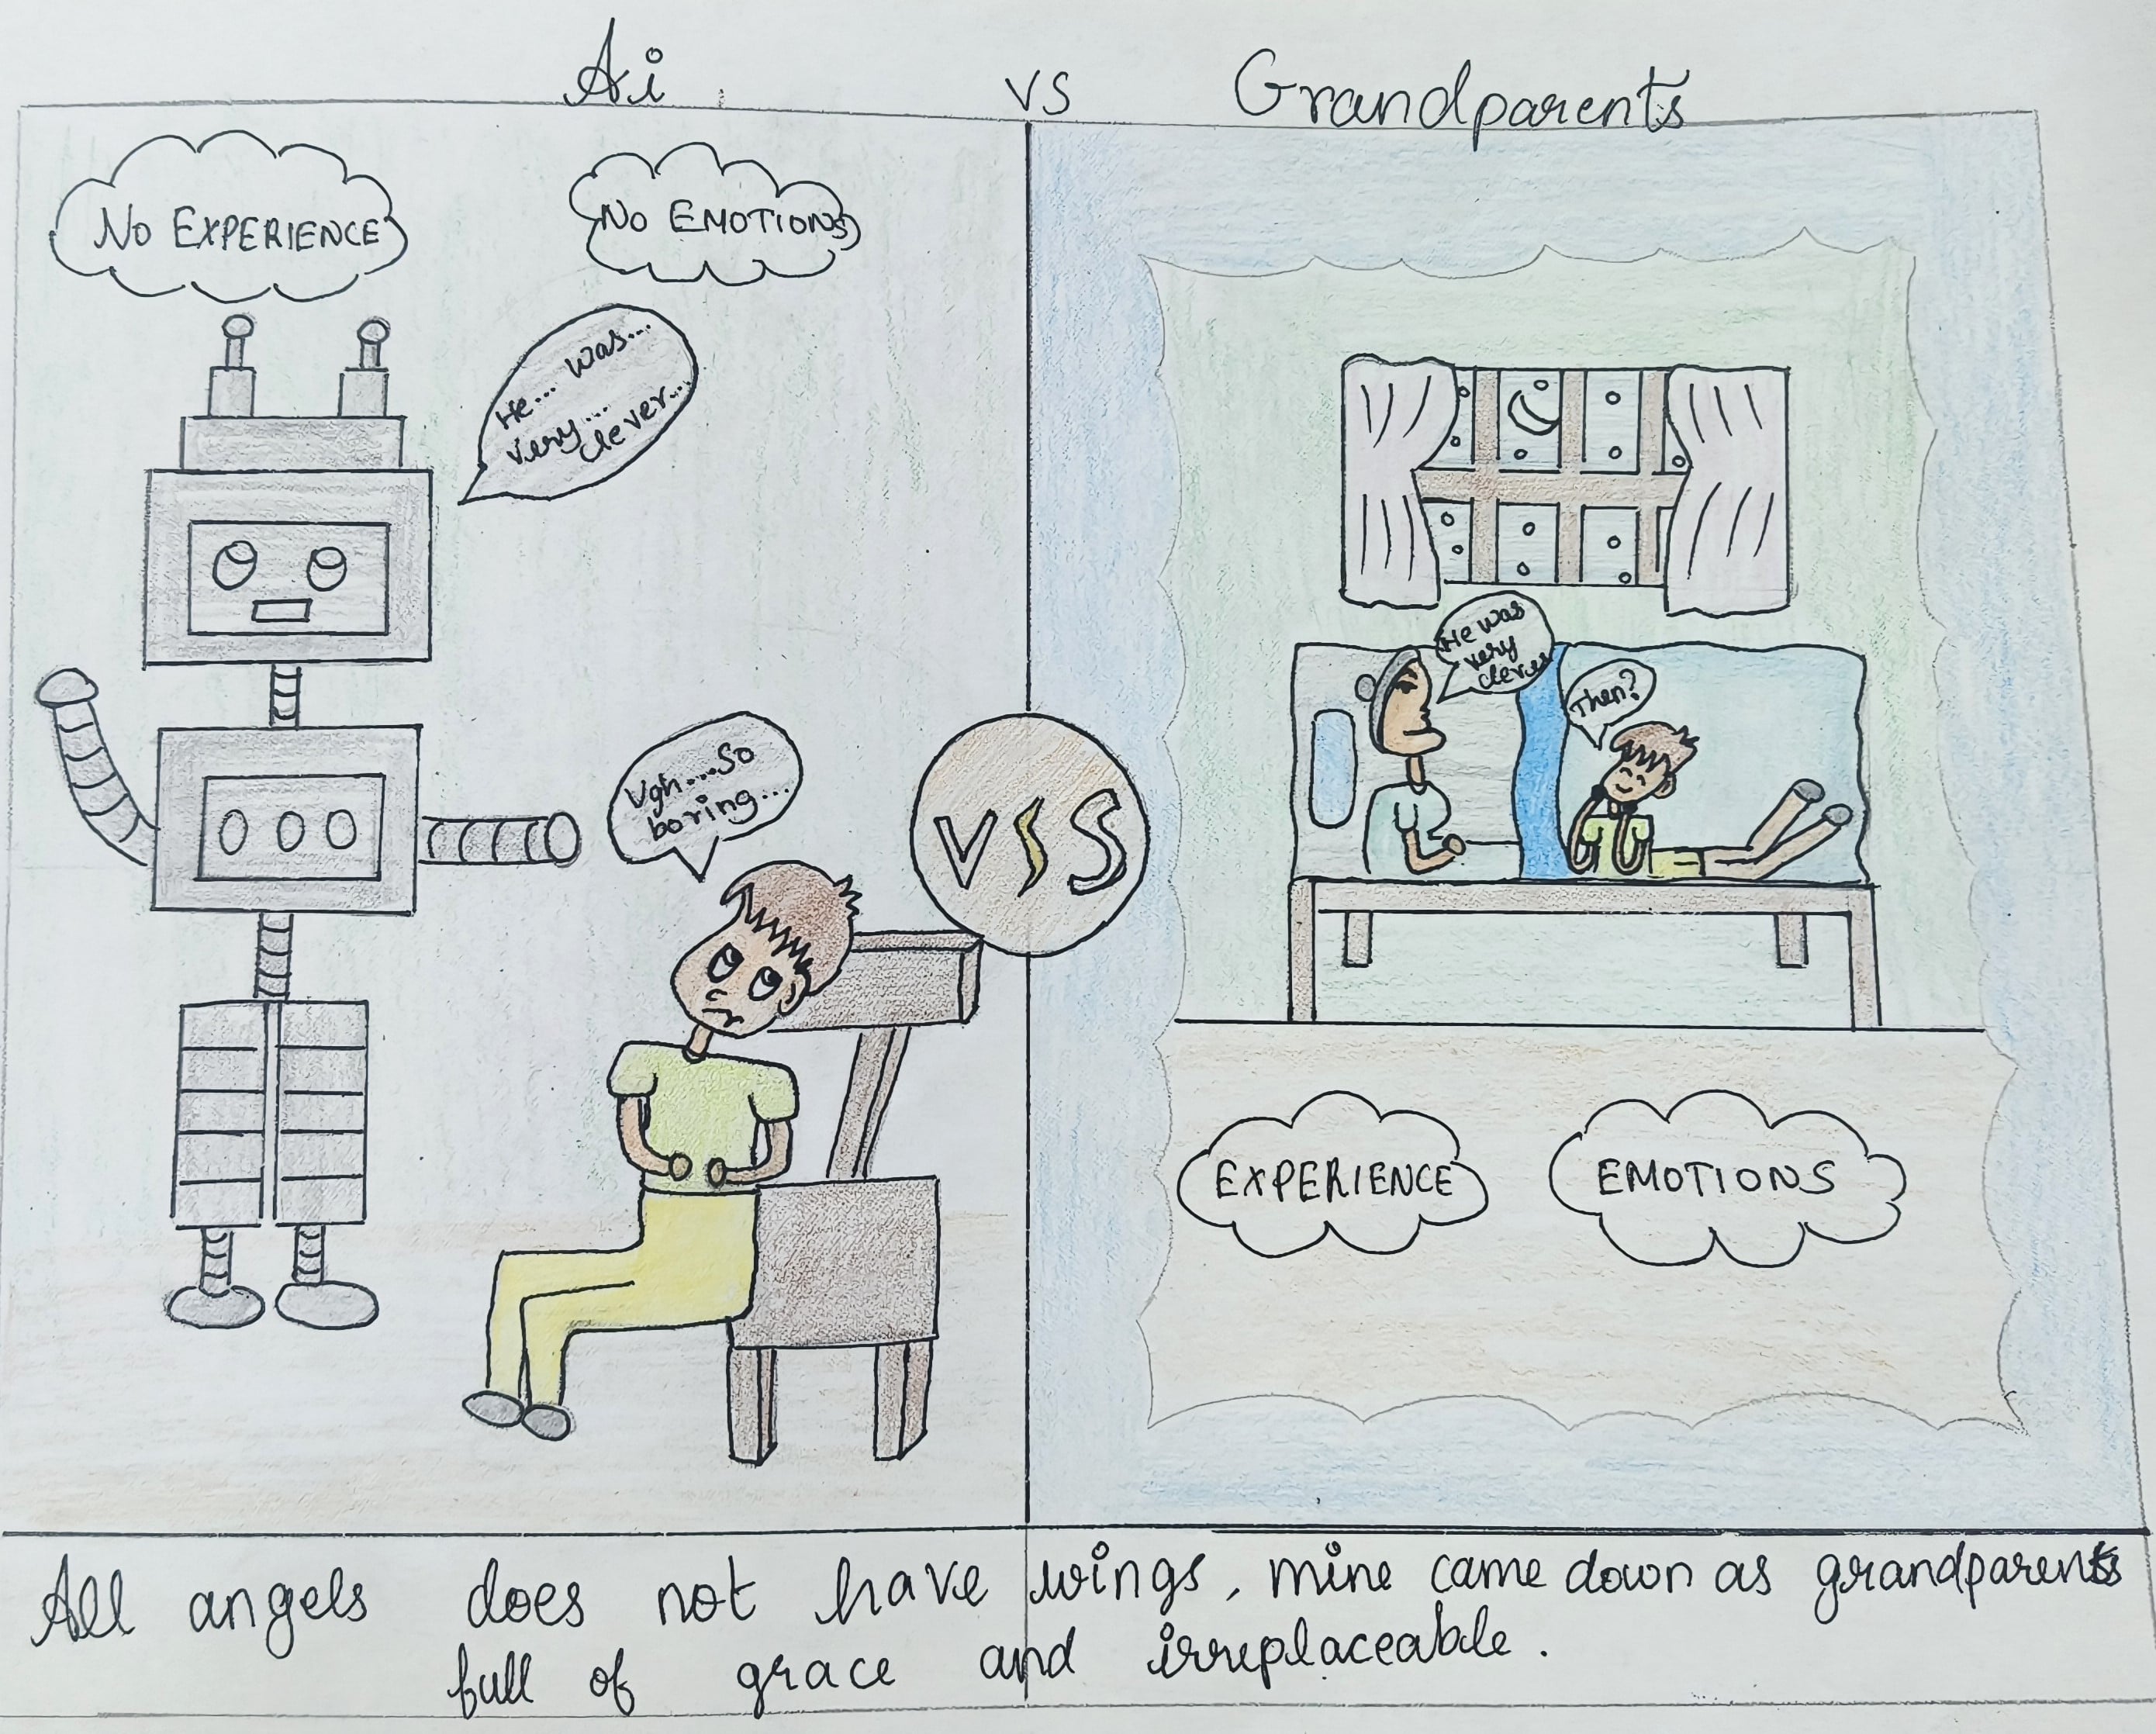 Ai vs Grandparents
No EXPERIENCE
No EMOTIONS
He... was...
very... clever...
Ugh....So
boring...
VS
He was
very
clever
Then?
EXPERIENCE
EMOTIONS
All angels does not have wings, mine came down as grandparents
full of grace and irreplaceable.